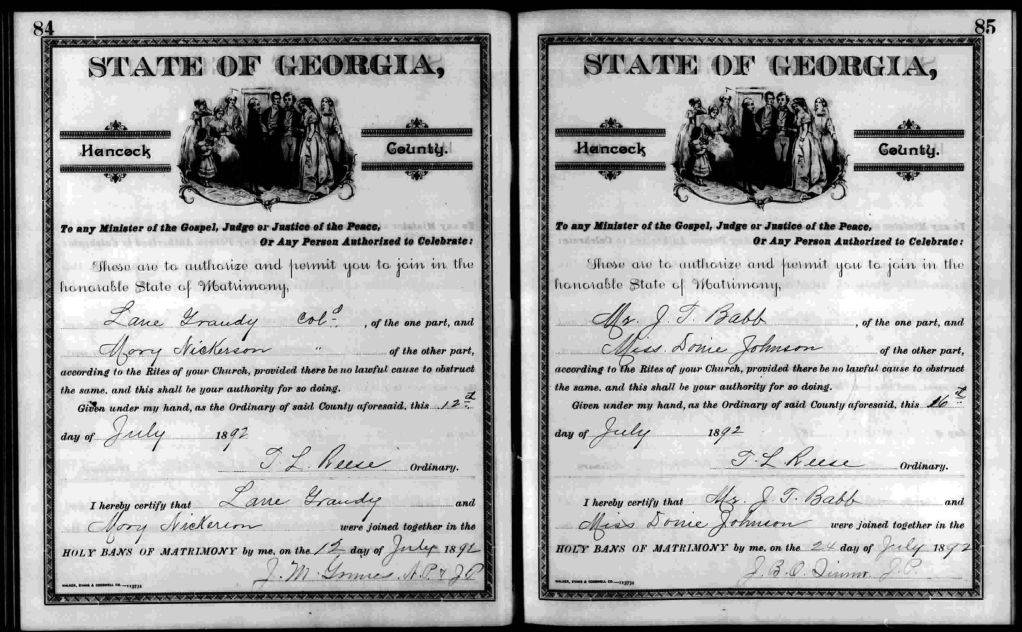 84
STATE OF GEORGIA,
Hancock County.
To any Minister of the Gospel, Judge or Justice of the Peace,
Or Any Person Authorized to Celebrate:
These are to authorize and permit you to join in the
honorable State of Matrimony,
Lane Grandy Cold. , of the one part, and
Mory Nickerson " of the other part,
according to the Rites of your Church, provided there be no lawful cause to obstruct
the same, and this shall be your authority for so doing.
Given under my hand, as the Ordinary of said County aforesaid, this 12th
day of July 1892
T. L. Reese Ordinary.
I hereby certify that Lane Grandy and
Mory Nickerson were joined together in the
HOLY BANS OF MATRIMONY by me, on the 12 day of July 1892
J. M. N.P. & J.P.
WALKER, EVANS & COGSWELL CO.
85
STATE OF GEORGIA,
Hancock County.
To any Minister of the Gospel, Judge or Justice of the Peace,
Or Any Person Authorized to Celebrate:
These are to authorize and permit you to join in the
honorable State of Matrimony,
Mr. J. T. Babb , of the one part, and
Miss Donie Johnson of the other part,
according to the Rites of your Church, provided there be no lawful cause to obstruct
the same, and this shall be your authority for so doing.
Given under my hand, as the Ordinary of said County aforesaid, this 16th
day of July 1892
T. L Reese Ordinary.
I hereby certify that Mr. J. T. Babb and
Miss Donie Johnson were joined together in the
HOLY BANS OF MATRIMONY by me, on the 24 day of July 1892
J. B. J.P.
WALKER, EVANS & COGSWELL CO.